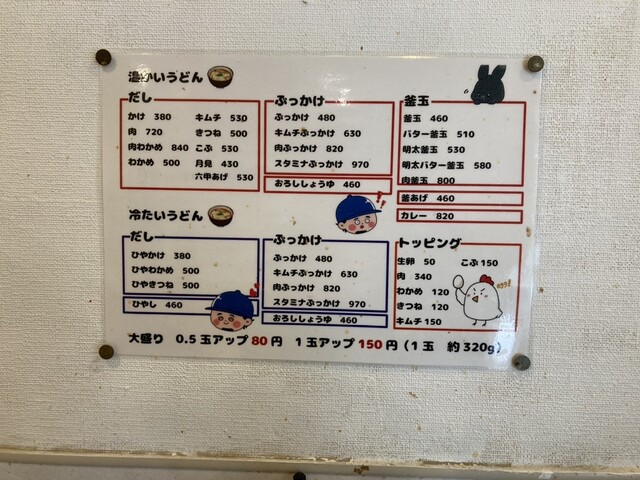 温かいうどん
だし
かけ 380
肉 720
肉わかめ 840
わかめ 500
キムチ 530
きつね 500
こぶ 530
月見 430
六甲あげ 530
ぶっかけ
ぶっかけ 480
キムチぶっかけ 630
肉ぶっかけ 820
スタミナぶっかけ 970
おろししょうゆ 460
釜玉
釜玉 460
バター釜玉 510
明太釜玉 530
明太バター釜玉 580
肉釜玉 800
釜あげ 460
カレー 820
冷たいうどん
だし
ひやかけ 380
ひやわかめ 500
ひやきつね 500
ひやし 460
ぶっかけ
ぶっかけ 480
キムチぶっかけ 630
肉ぶっかけ 820
スタミナぶっかけ 970
おろししょうゆ 460
トッピング
生卵 50 こぶ 150
肉 340
わかめ 120
きつね 120
キムチ 150
大盛り 0.5玉アップ80円 1玉アップ150円(1玉 約320g)